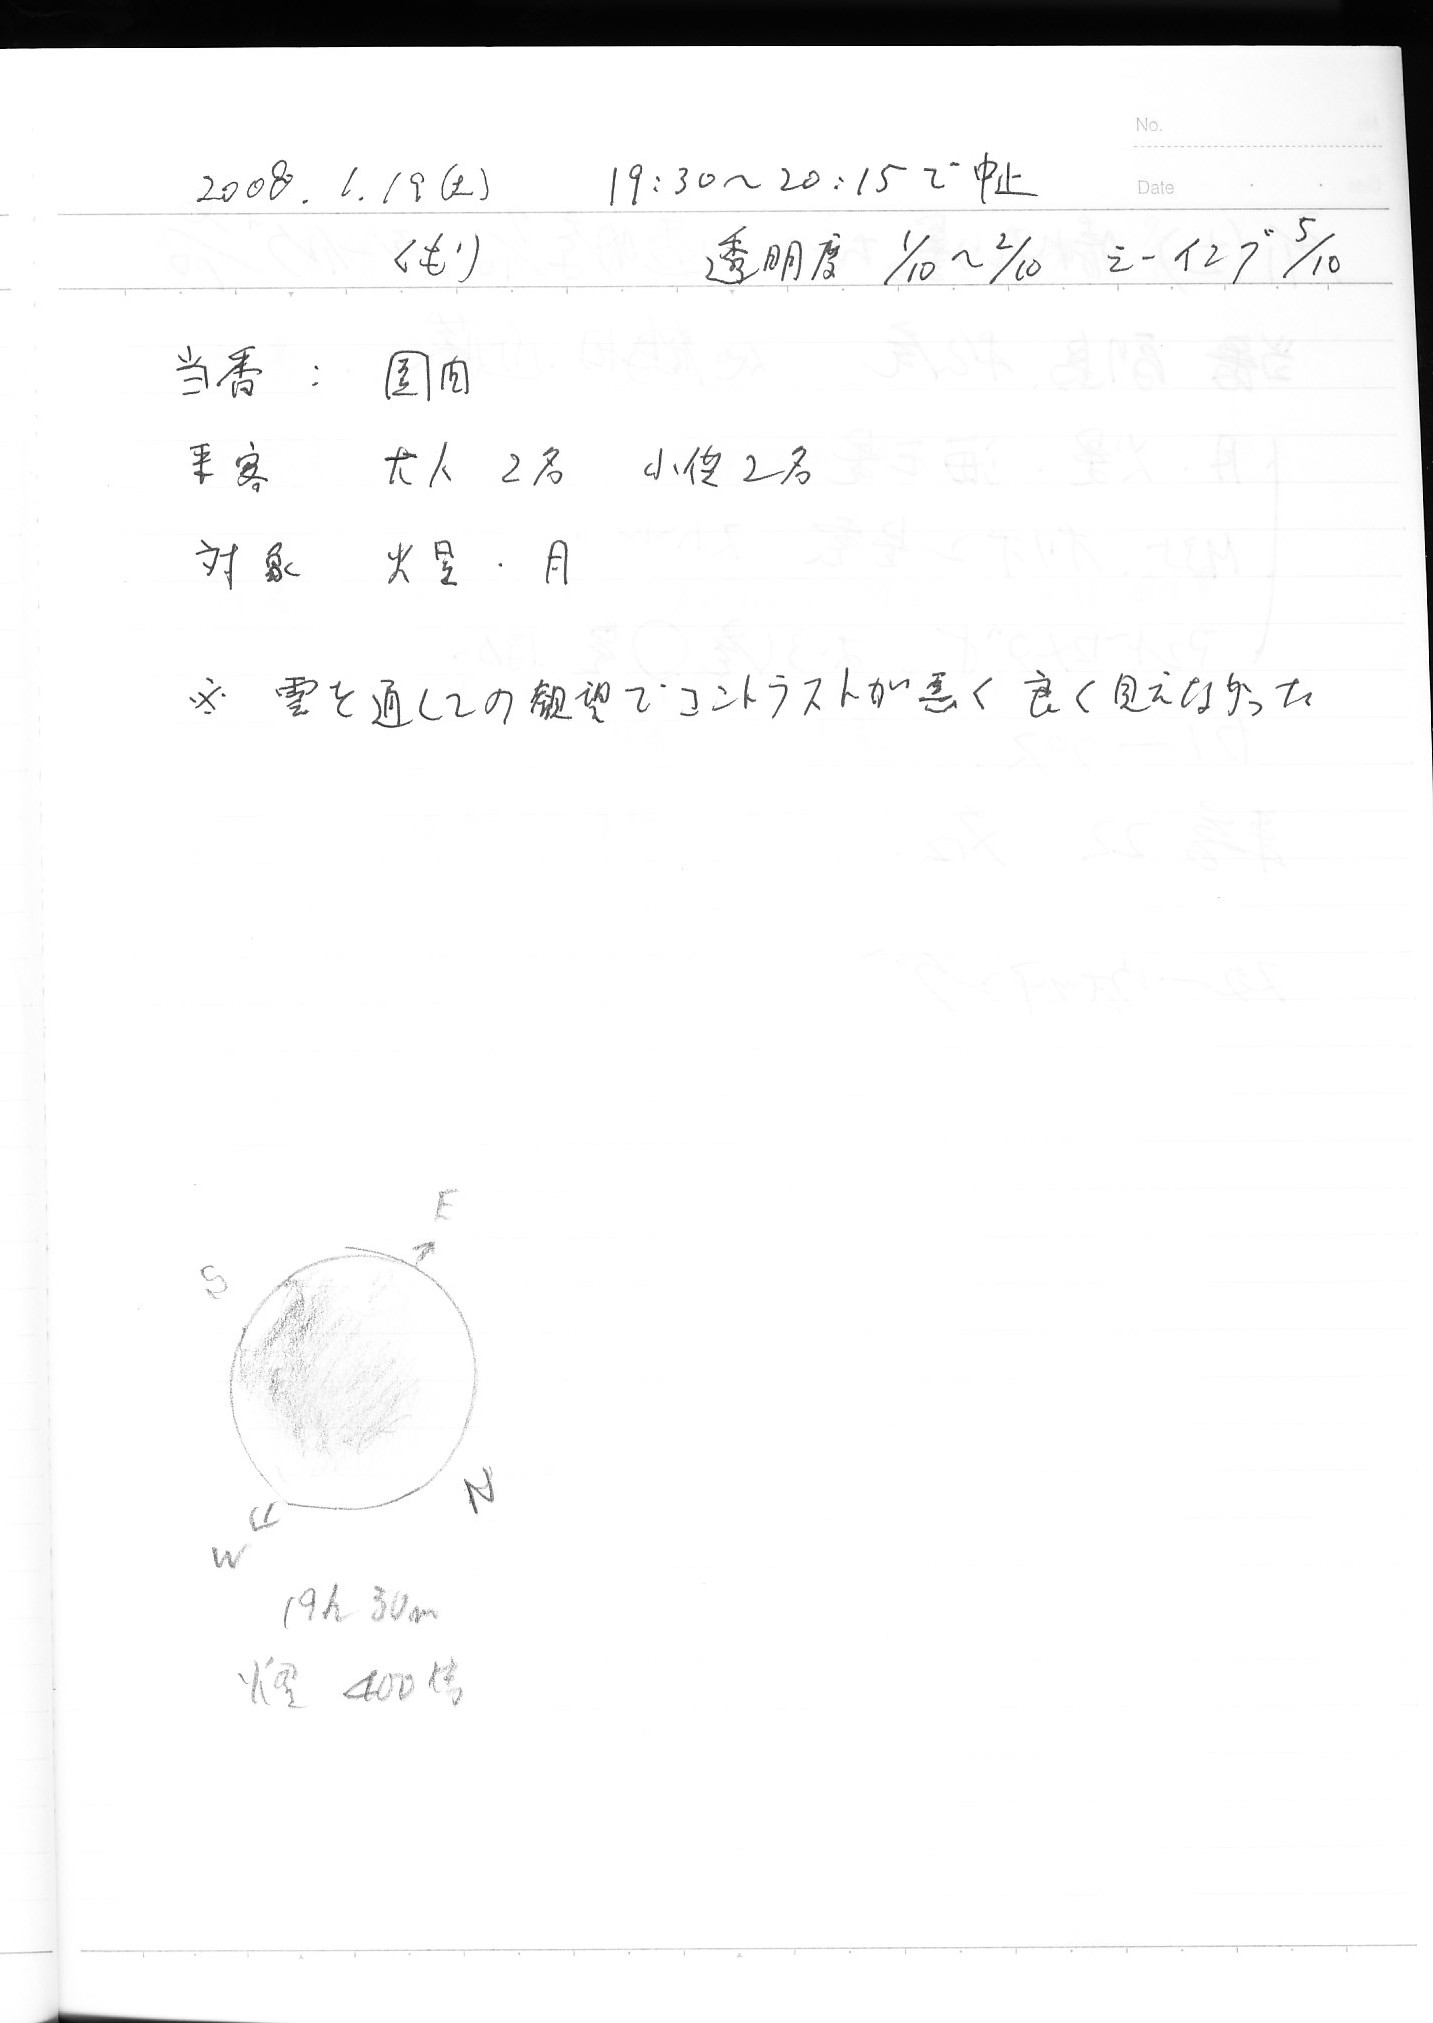 No.
Date
2008. 1. 19(土) 19:30〜20:15で中止
くもり 透明度 1/10〜2/10 シーイング 5/10
当番:
来客 大人 2名 小人 2名
対象 火星・月
※ 雲を通しての観望でコントラストが悪く良く見えなかった
E
S
N
W
19h 30m
火星 400倍